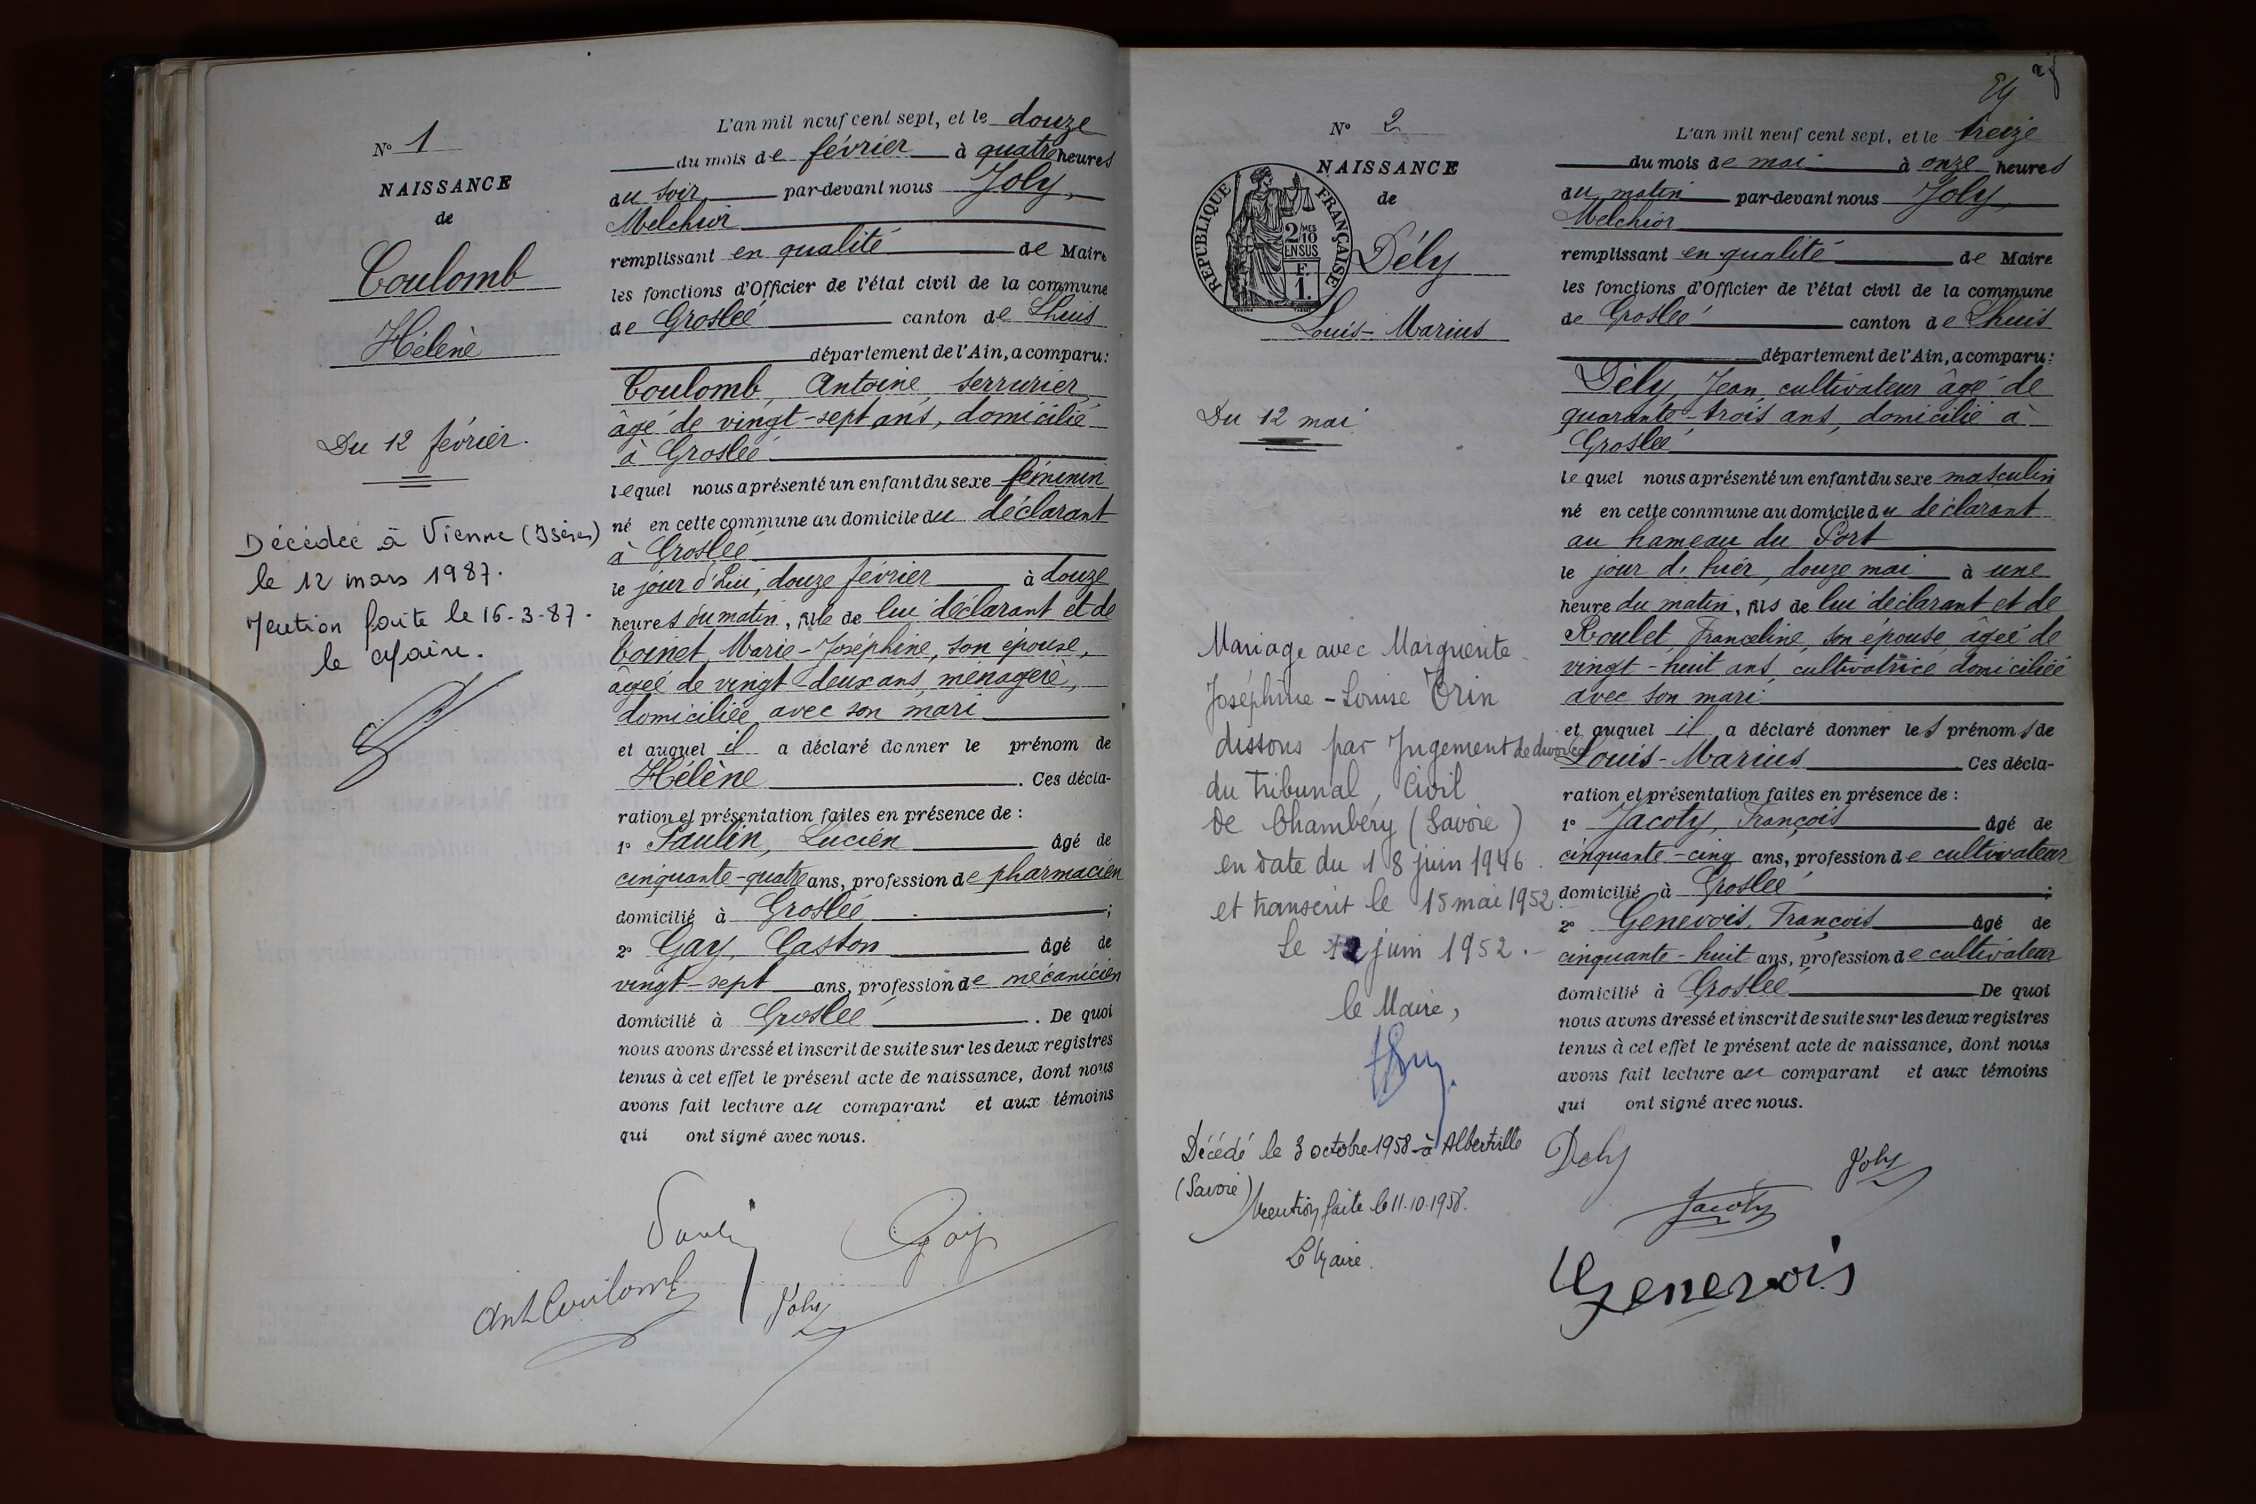 N° 1
NAISSANCE
de
Coulomb
Hélène
Du 12 février.
Décédée à Vienne (Isère)
le 12 mars 1987.
Mention faite le 16-3-87.
le Maire.
L'an mil neuf cent sept, et le douze
du mois de février à quatre heures
du soir par-devant nous Joly,
Melchior
remplissant en qualité de Maire
les fonctions d'Officier de l'état civil de la commune
de Groslée canton de Lhuis
département de l'Ain, a comparu:
Coulomb, Antoine, serrurier,
âgé de vingt-sept ans, domicilié
à Groslée
lequel nous a présenté un enfant du sexe féminin
né en cette commune au domicile du déclarant
à Groslée
le jour d'hui, douze février à douze
heures du matin, fille de lui déclarant et de
Coinet Marie-Joséphine, son épouse,
âgée de vingt-deux ans, ménagère,
domiciliée avec son mari
et auquel il a déclaré donner le prénom de
Hélène . Ces décla-
ration et présentation faites en présence de :
1° Paulin, Lucien âgé de
cinquante-quatre ans, profession de pharmacien
domicilié à Groslée ;
2° Gay, Gaston âgé de
vingt-sept ans, profession de mécanicien
domicilié à Groslée . De quoi
nous avons dressé et inscrit de suite sur les deux registres
tenus à cet effet le présent acte de naissance, dont nous
avons fait lecture au comparant et aux témoins
qui ont signé avec nous.
Paulin
Gay
Ant Coulomb
Joly
N° 2
NAISSANCE
de
RÉPUBLIQUE FRANÇAISE
2/10 MES
EN SUS
F.
1.
Dély
Louis-Marius
Du 12 mai
Mariage avec Marguerite
Joséphine-Louise Orin
dissous par Jugement de divorce
du Tribunal Civil
de Chambéry (Savoie)
en date du 18 juin 1946
et transcrit le 15 mai 1952
Le 12 juin 1952.
le Maire,
Décédé le 3 octobre 1958 à Albertville
(Savoie)
Mention faite le 11.10.1958.
Le Maire.
L'an mil neuf cent sept, et le treize
du mois de mai à onze heures
du matin par-devant nous Joly,
Melchior
remplissant en qualité de Maire
les fonctions d'Officier de l'état civil de la commune
de Groslée canton de Lhuis
département de l'Ain, a comparu:
Dély, Jean, cultivateur âgé de
quarante-trois ans, domicilié à
Groslée
lequel nous a présenté un enfant du sexe masculin
né en cette commune au domicile du déclarant
au hameau du Port
le jour d'hier, douze mai à une
heure du matin, fils de lui déclarant et de
Roulet, Franceline, son épouse, âgée de
vingt-huit ans, cultivatrice domiciliée
avec son mari
et auquel il a déclaré donner les prénoms de
Louis-Marius Ces décla-
ration et présentation faites en présence de :
1° Jacoty, François âgé de
cinquante-cinq ans, profession de cultivateur
domicilié à Groslée ;
2° Genevois, François âgé de
cinquante-huit ans, profession de cultivateur
domicilié à Groslée De quoi
nous avons dressé et inscrit de suite sur les deux registres
tenus à cet effet le présent acte de naissance, dont nous
avons fait lecture au comparant et aux témoins
qui ont signé avec nous.
Dely
Joly
Jacoty
Genevois